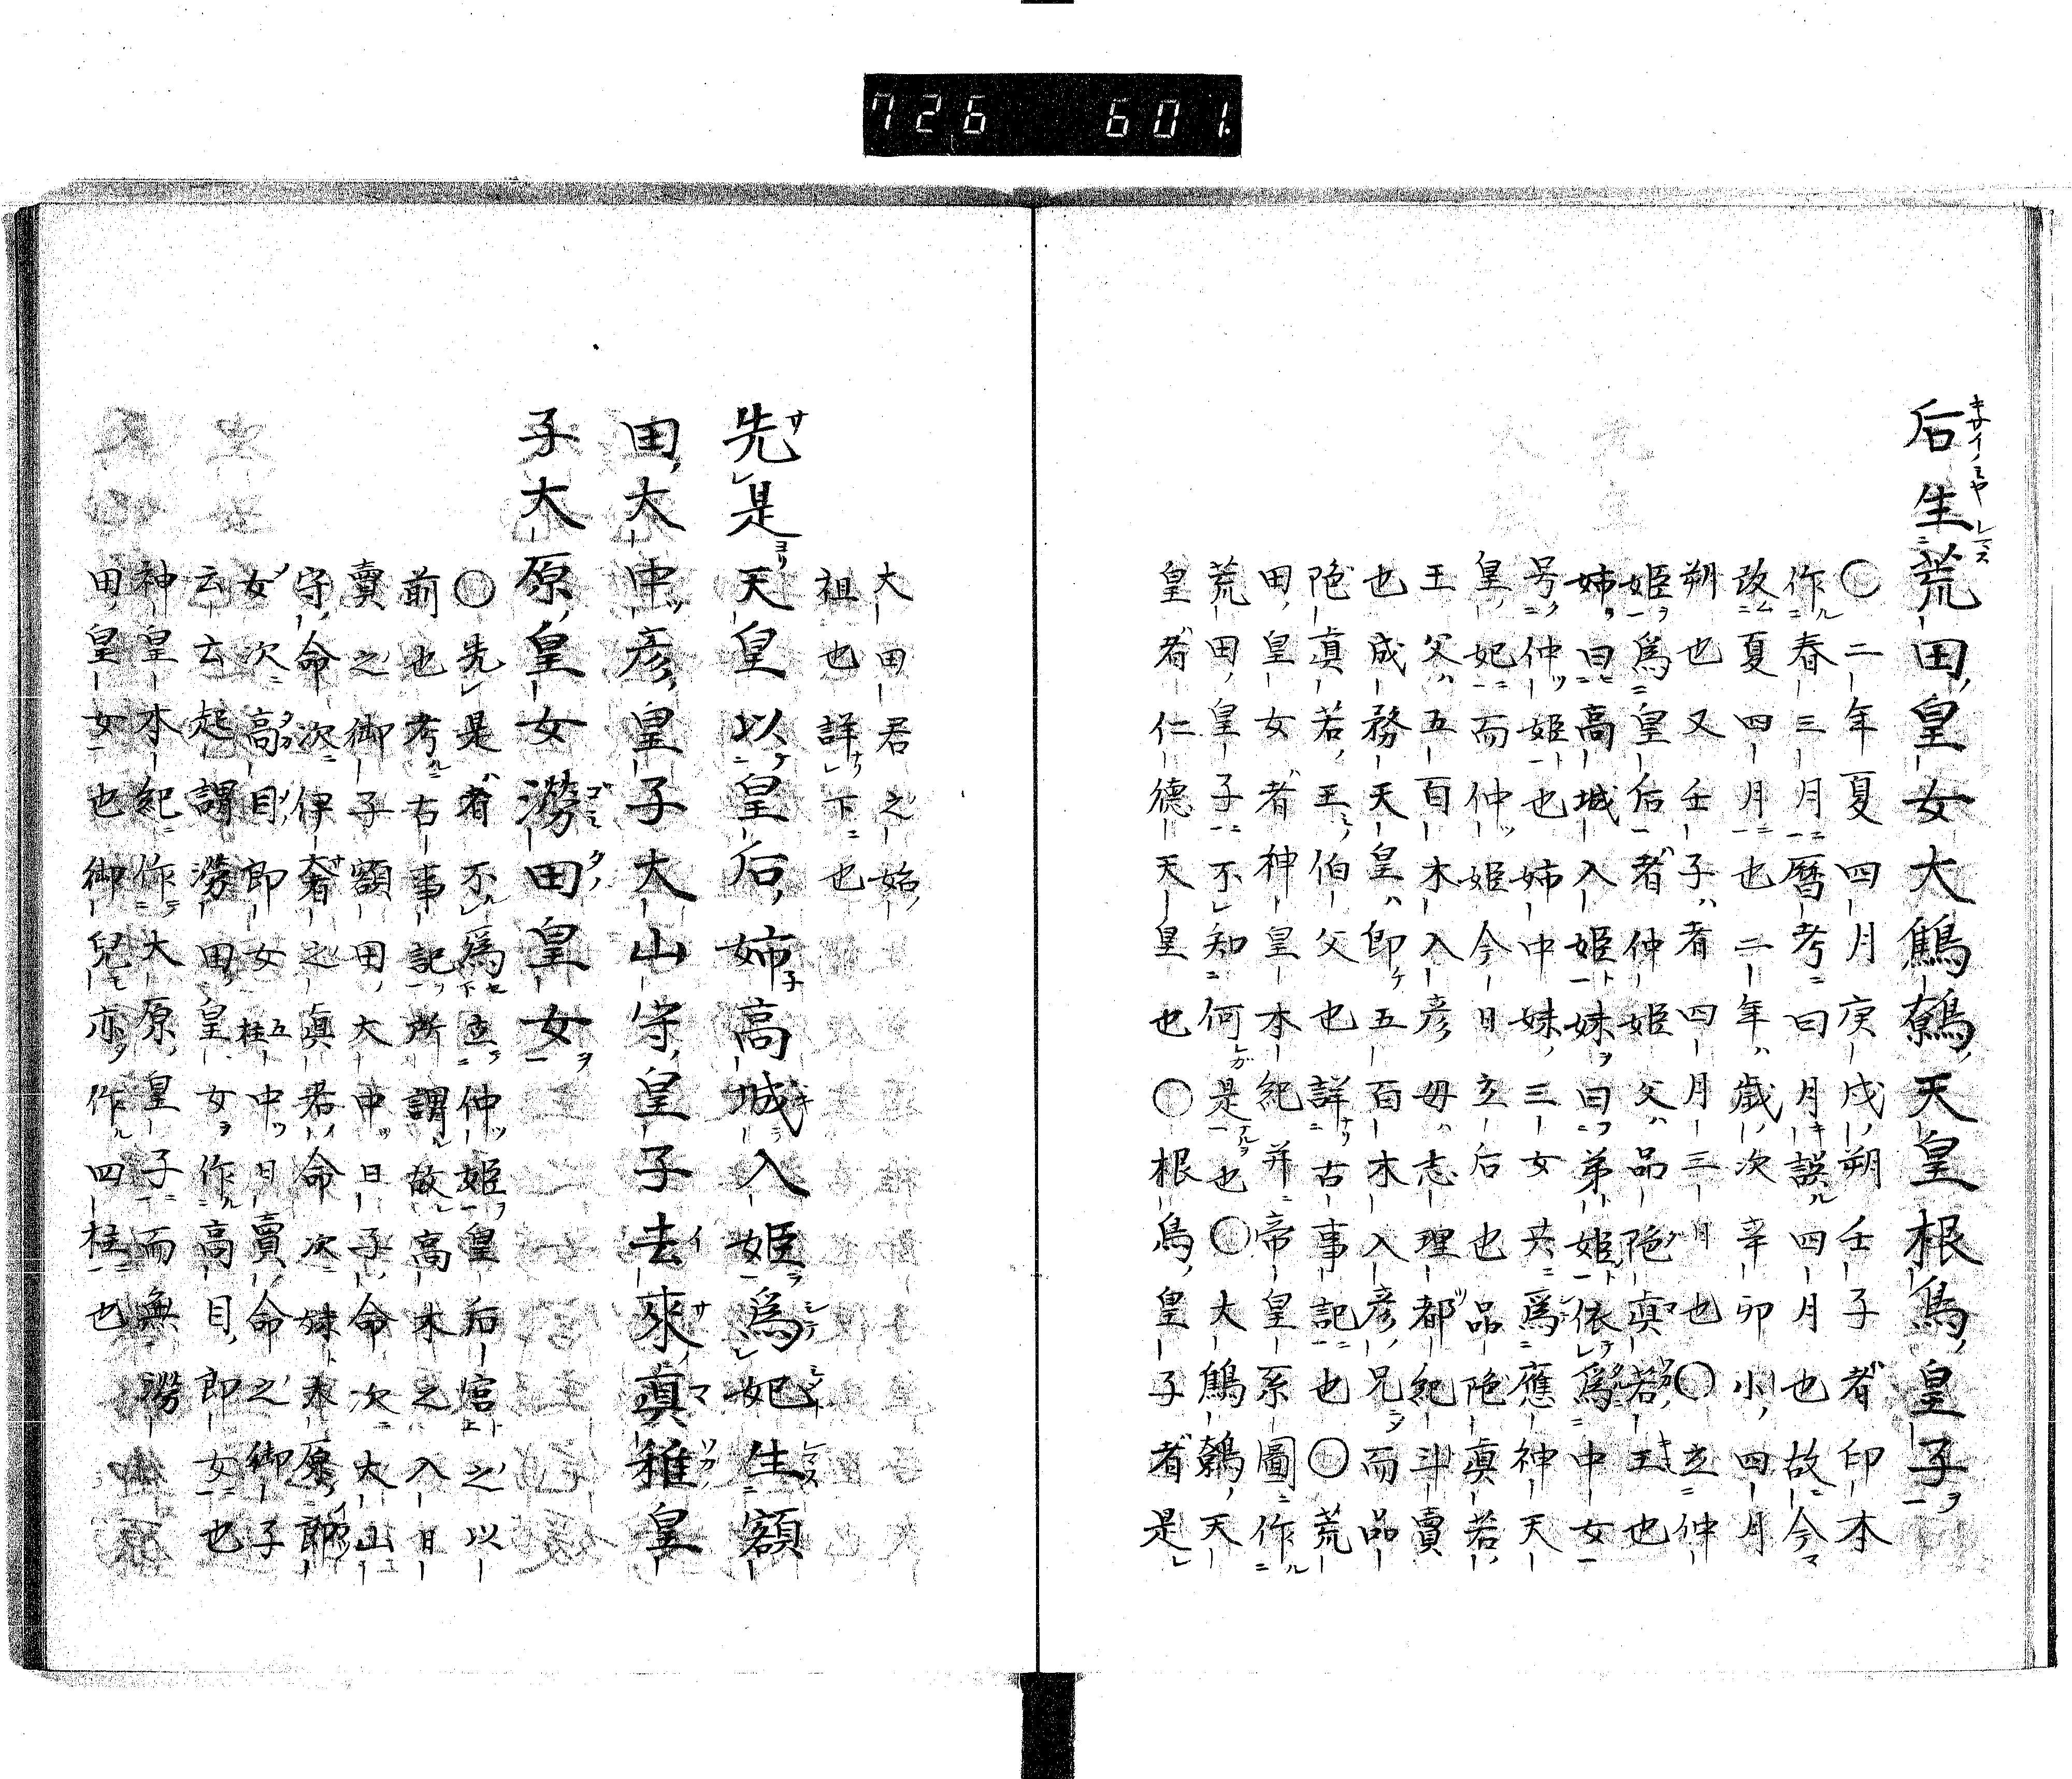 726 601
后生荒田皇女大鷦鷯天皇根鳥皇子
〇二年夏四月庚戌朔壬子者印本
作春三月暦考曰月誤四月也故今
改夏四月也二年歳次辛卯小四月
朔也又壬子者四月三日也〇立仲
姫爲皇后者仲姫父品陁真若王也
姉曰高城入姫妹曰弟姫依爲中女
号仲姫也姉中妹三女共爲應神天
皇妃而仲姫今日立后也品陁真若
王父五百木入彦母志理都紀斗賣
也成務天皇即五百木入彦兄而品
陁真若王伯父也詳古事記也〇荒
田皇女者神皇本紀并帝皇系圖作
荒田皇子不知何是也〇大鷦鷯天
皇者仁徳天皇也〇根鳥皇子者是
大田君之始
祖也詳下也
先是天皇以皇后姉高城入姫爲妃生額
田大中彦皇子大山守皇子去來眞稚皇
子大原皇女澇田皇女
〇先是者不爲立仲姫皇后宮之以
前也考古事記所謂故高木之入日
賣之御子額田大中日子命次大山
守命次伊奢之真若命次妹大原郎
女次高目郎女五柱中日賣命之御子
云云起謂澇田皇女作高目郎女也
神皇本紀作大原皇子而無澇
田皇女也御兒亦作四柱也